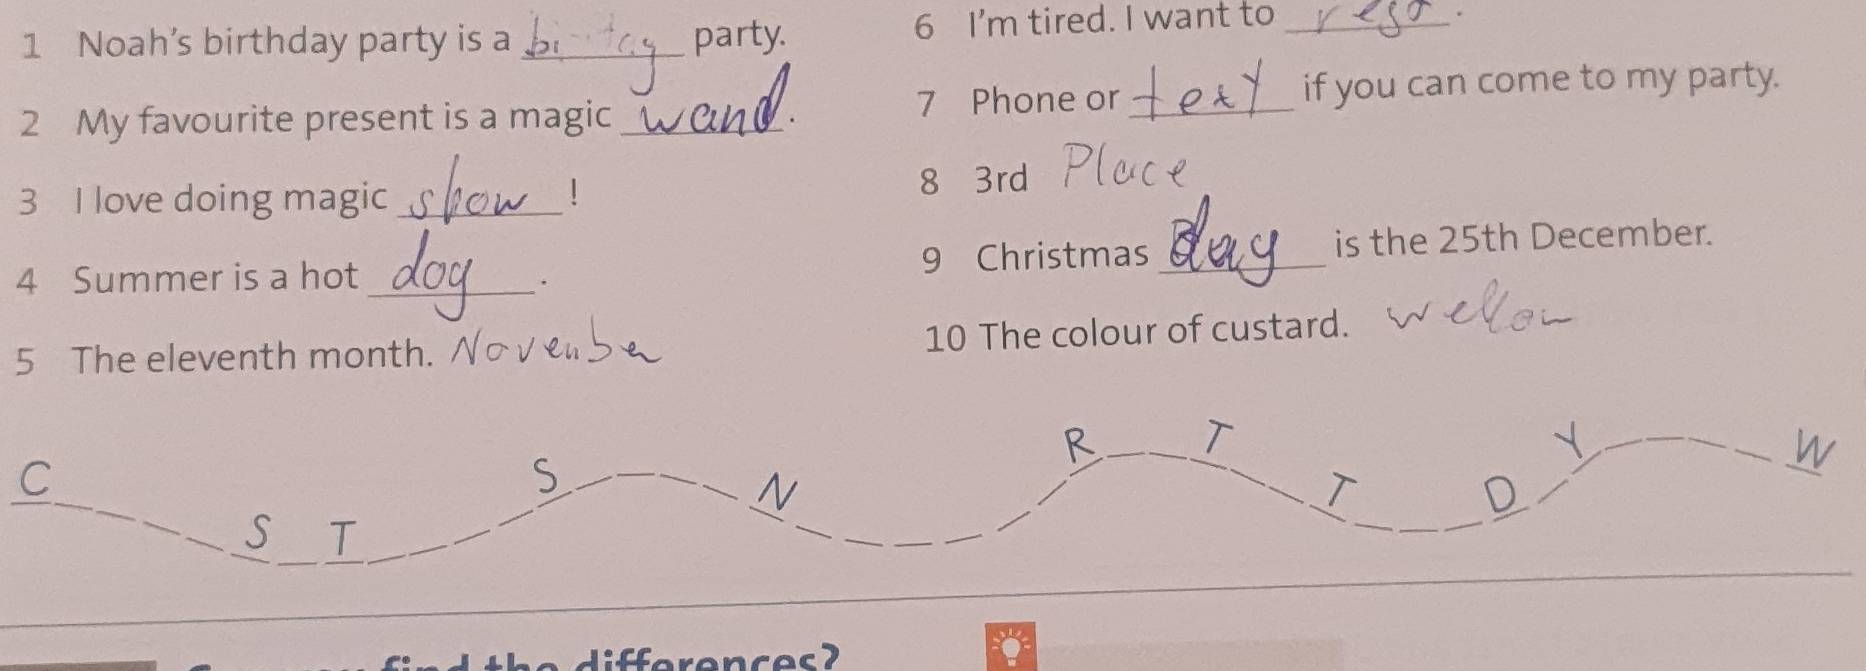 1 Noah's birthday party is a party.
2 My favourite present is a magic wand.
3 I love doing magic show!
4 Summer is a hot dog.
5 The eleventh month. November
6 I'm tired. I want to rest.
7 Phone or text if you can come to my party.
8 3rd Place
9 Christmas day is the 25th December.
10 The colour of custard. wellow
C S T S N R T T D Y W
find the differences?